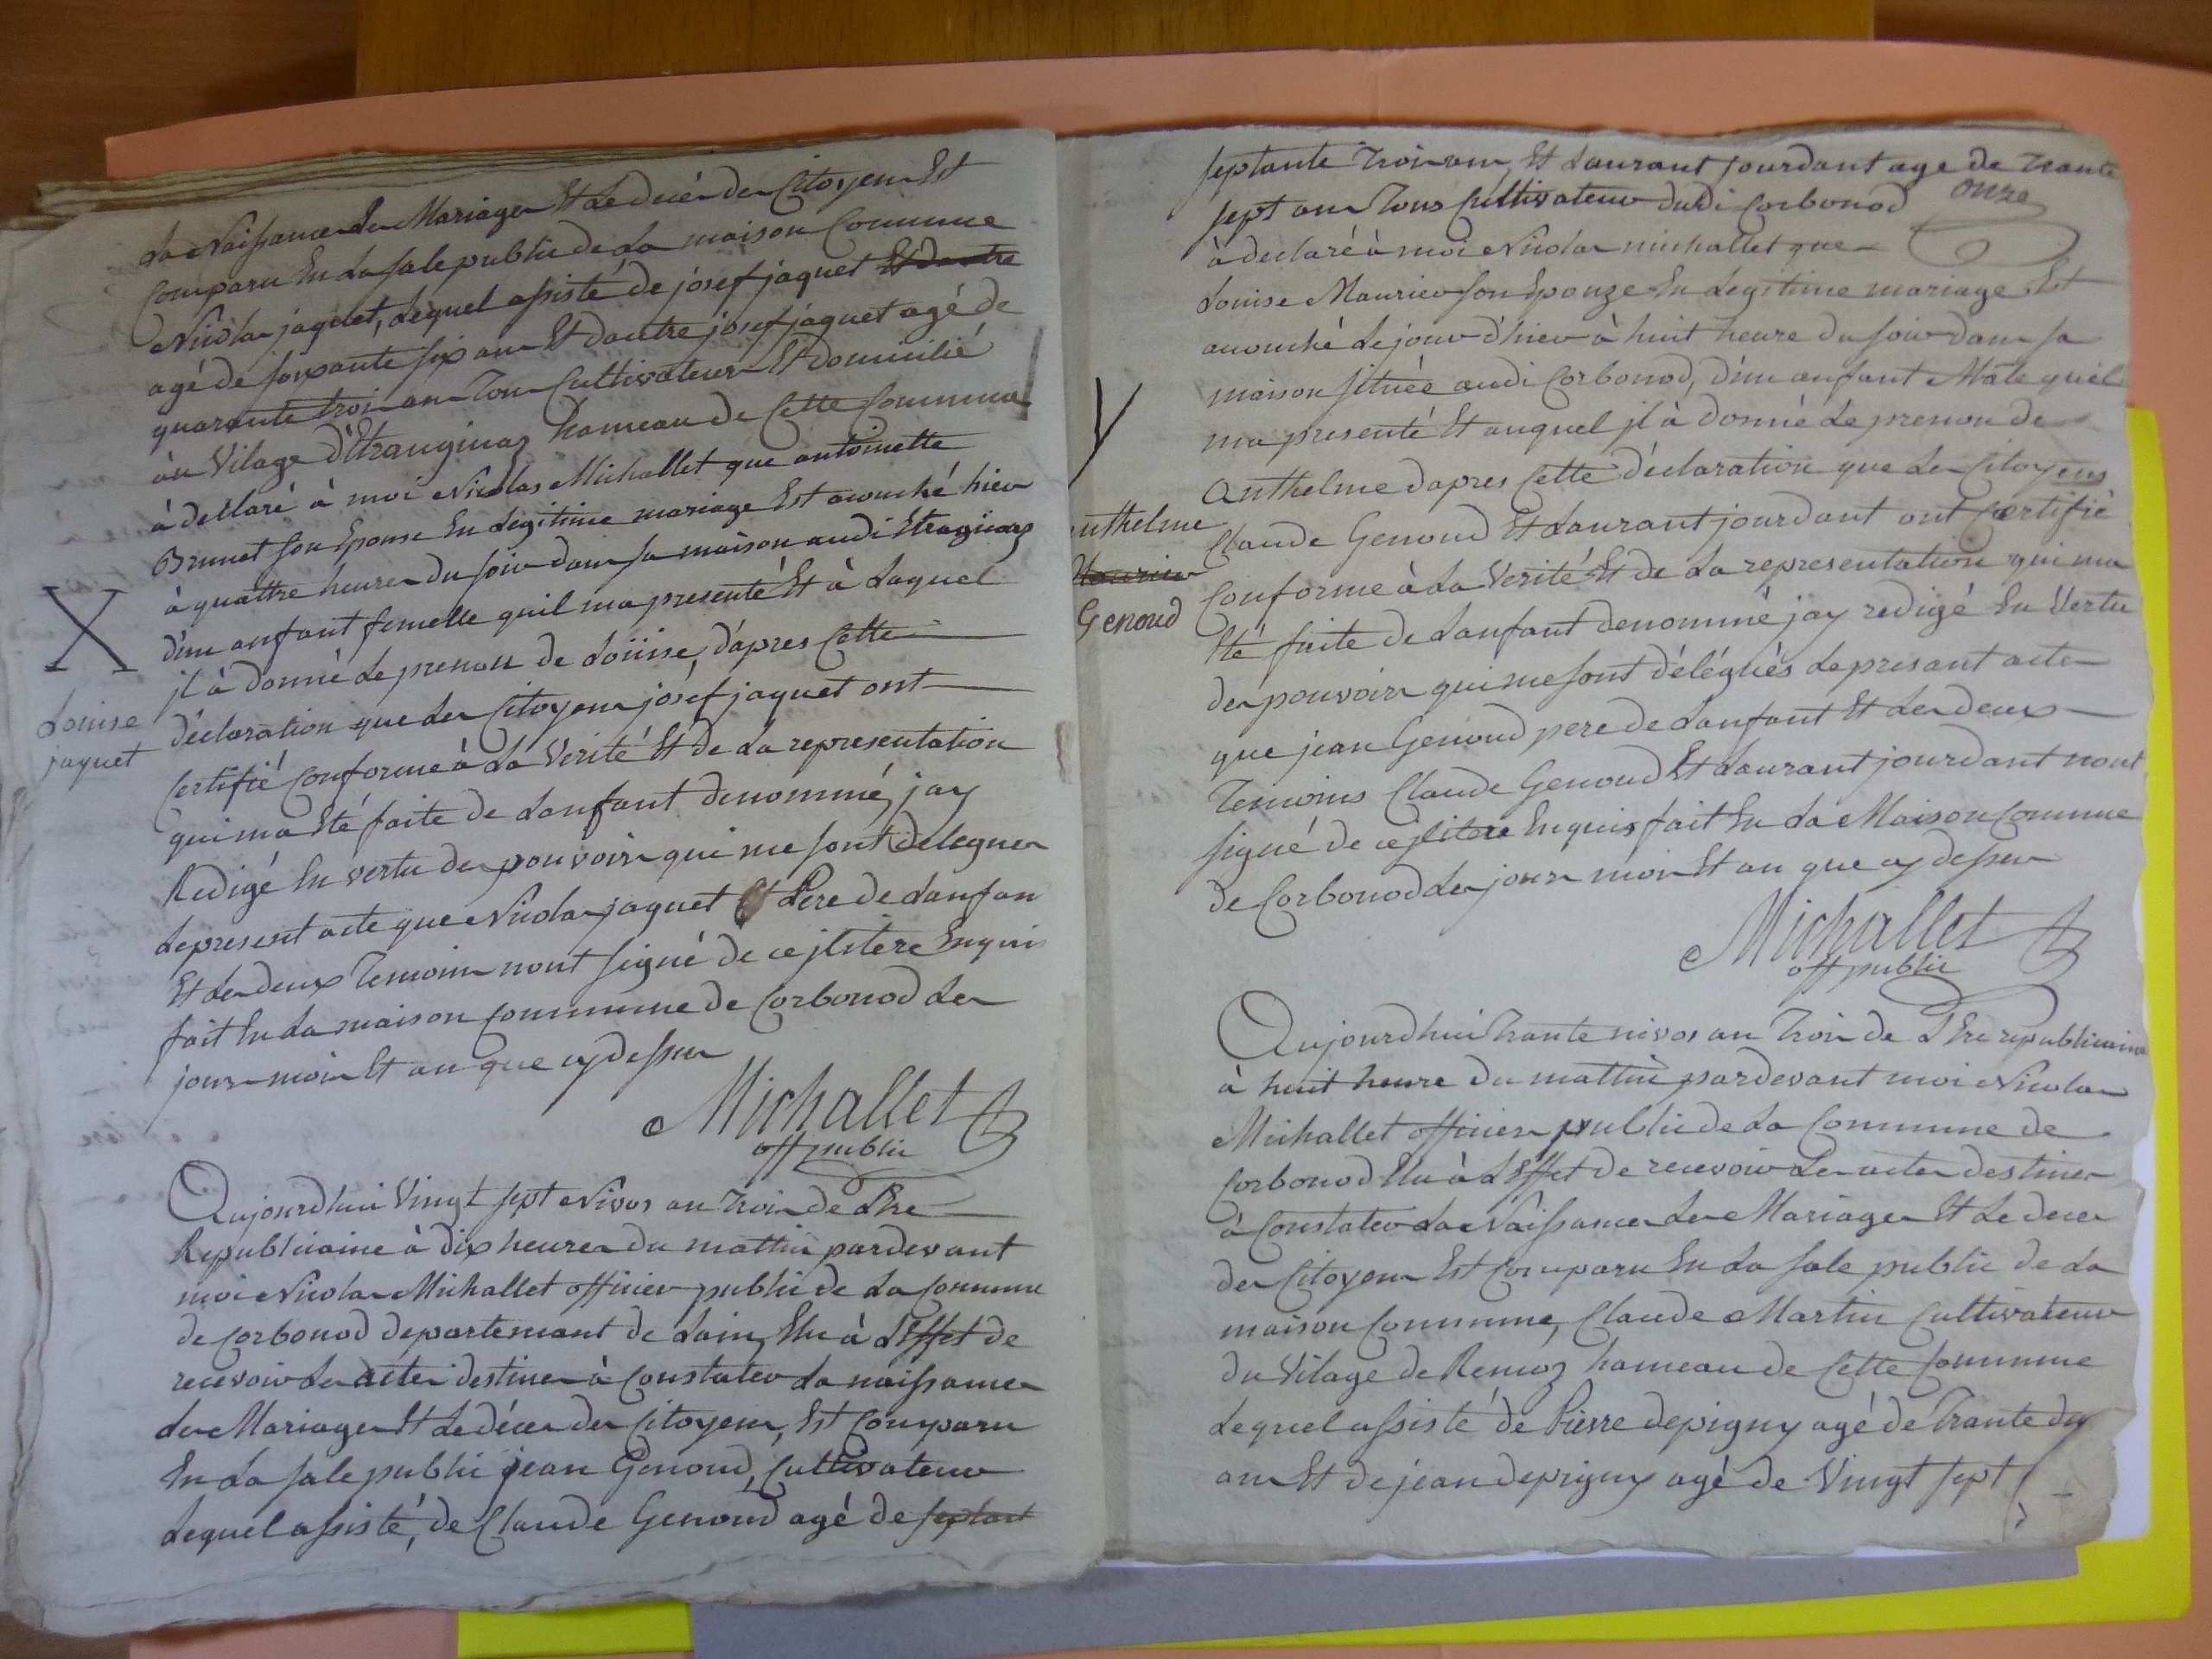 La Naissance Les Mariages Et Le décé des Citoyens Est
Comparu En La sale public de La maison Commune
Nicolas jaquet, Lequel assisté de josef jaquet Et dautre
agé de soixante six ans Et dautre josef jaquet agé de
quarante trois ans Tous Cultivateurs Et domicilié
àu Vilage d'Etranginaz hameau de Cette Commune
à déclaré à moi Nicolas Michallet que antoinette
Brunet son Epouse En Legitime mariage Est acouché hier
à quattre heures du soir dans sa maison audi Etraginaz
d'un anfant femelle quil ma presenté Et à Laquel
jl à donné Le prenon de Loüise, d'apres Cette
déclaration que Les Citoyens jósef jaquet ont
Certifié Conforme à La Verité Et de La representation
qui ma Eté faite de Lanfant denommé, jay
Redigé En vertu des pouvoirs qui me sont delegues
Le present acte que Nicolas jaquet Pere de Lanfan
Et Les deux Temoins nont signé de ce jlitere Enquis
fait En La maison Commune de Corbonod Les
jours mois Et an que cy dessus
Michallet
off public
X
Louise
jaquet
Aujourdhui Vingt sept Nivos an Trois de L'Ere
Republicaine à dix heures du mattin pardevant
moi Nicolas Michallet officier public de La Commune
de Corbonod departemant de Lain, Elu à L'Effet de
recevoir Les actes destines à Constater La naissances
Les Mariages Et Le décés des Citoyens, Est Comparu
En La sale public jean Genoud, Cultivateur
Lequel assisté, de Claude Genoud agé de septant
septante Trois ans, Et Laurant jourdant agé de Trante
onze
sept ans Tous Cultivateur dudi Corbonod
à declaré à moi Nicolas michallet que
Louise Maurier son Epouze En Legitime mariage Est
acouché Le jour d'hier à huit heure du soir dans sa
maison située audi Corbonod, d'un anfant Mâle quel
ma presenté Et auquel jl à donné Le prenon de
Anthelme dapres Cette déclaration que Les Citoyens
Claude Genoud Et Laurant jourdant ont Certifié
Conforme à La Verité Et de La representation qui ma
Eté faite de Lanfant denommé jay redigé En Vertu
des pouvoirs qui me sont délégués Le presant actes
que jean Genoud pere de Lanfant Et Les deux
Temoins Claude Genoud Et Laurant jourdant nont
signé de ce jlitere Enquis fait En La Maison Commune
de Corbonod Les jours mois Et an que cy dessus
Michallet
off public
nthelme
Maurier
Genoud
Aujourdhui Trante nivos an Trois de L'Ere republicaine
à huit heure du mattin pardevant moi Nicolas
Michallet officiers public de La Commune de
Corbonod Elu à L'Effet de recevoir Les actes destines
à Constater La Naissances Les Mariages Et Le deces
des Citoyens Est Comparu En La sale public de La
maison Commune, Claude Martin Cultivateur
du Vilage de Remoz hameau de Cette Commune
Lequel assisté de Pierre depigny agé de Trante dix
ans Et de jean depigny agé de Vingt sept